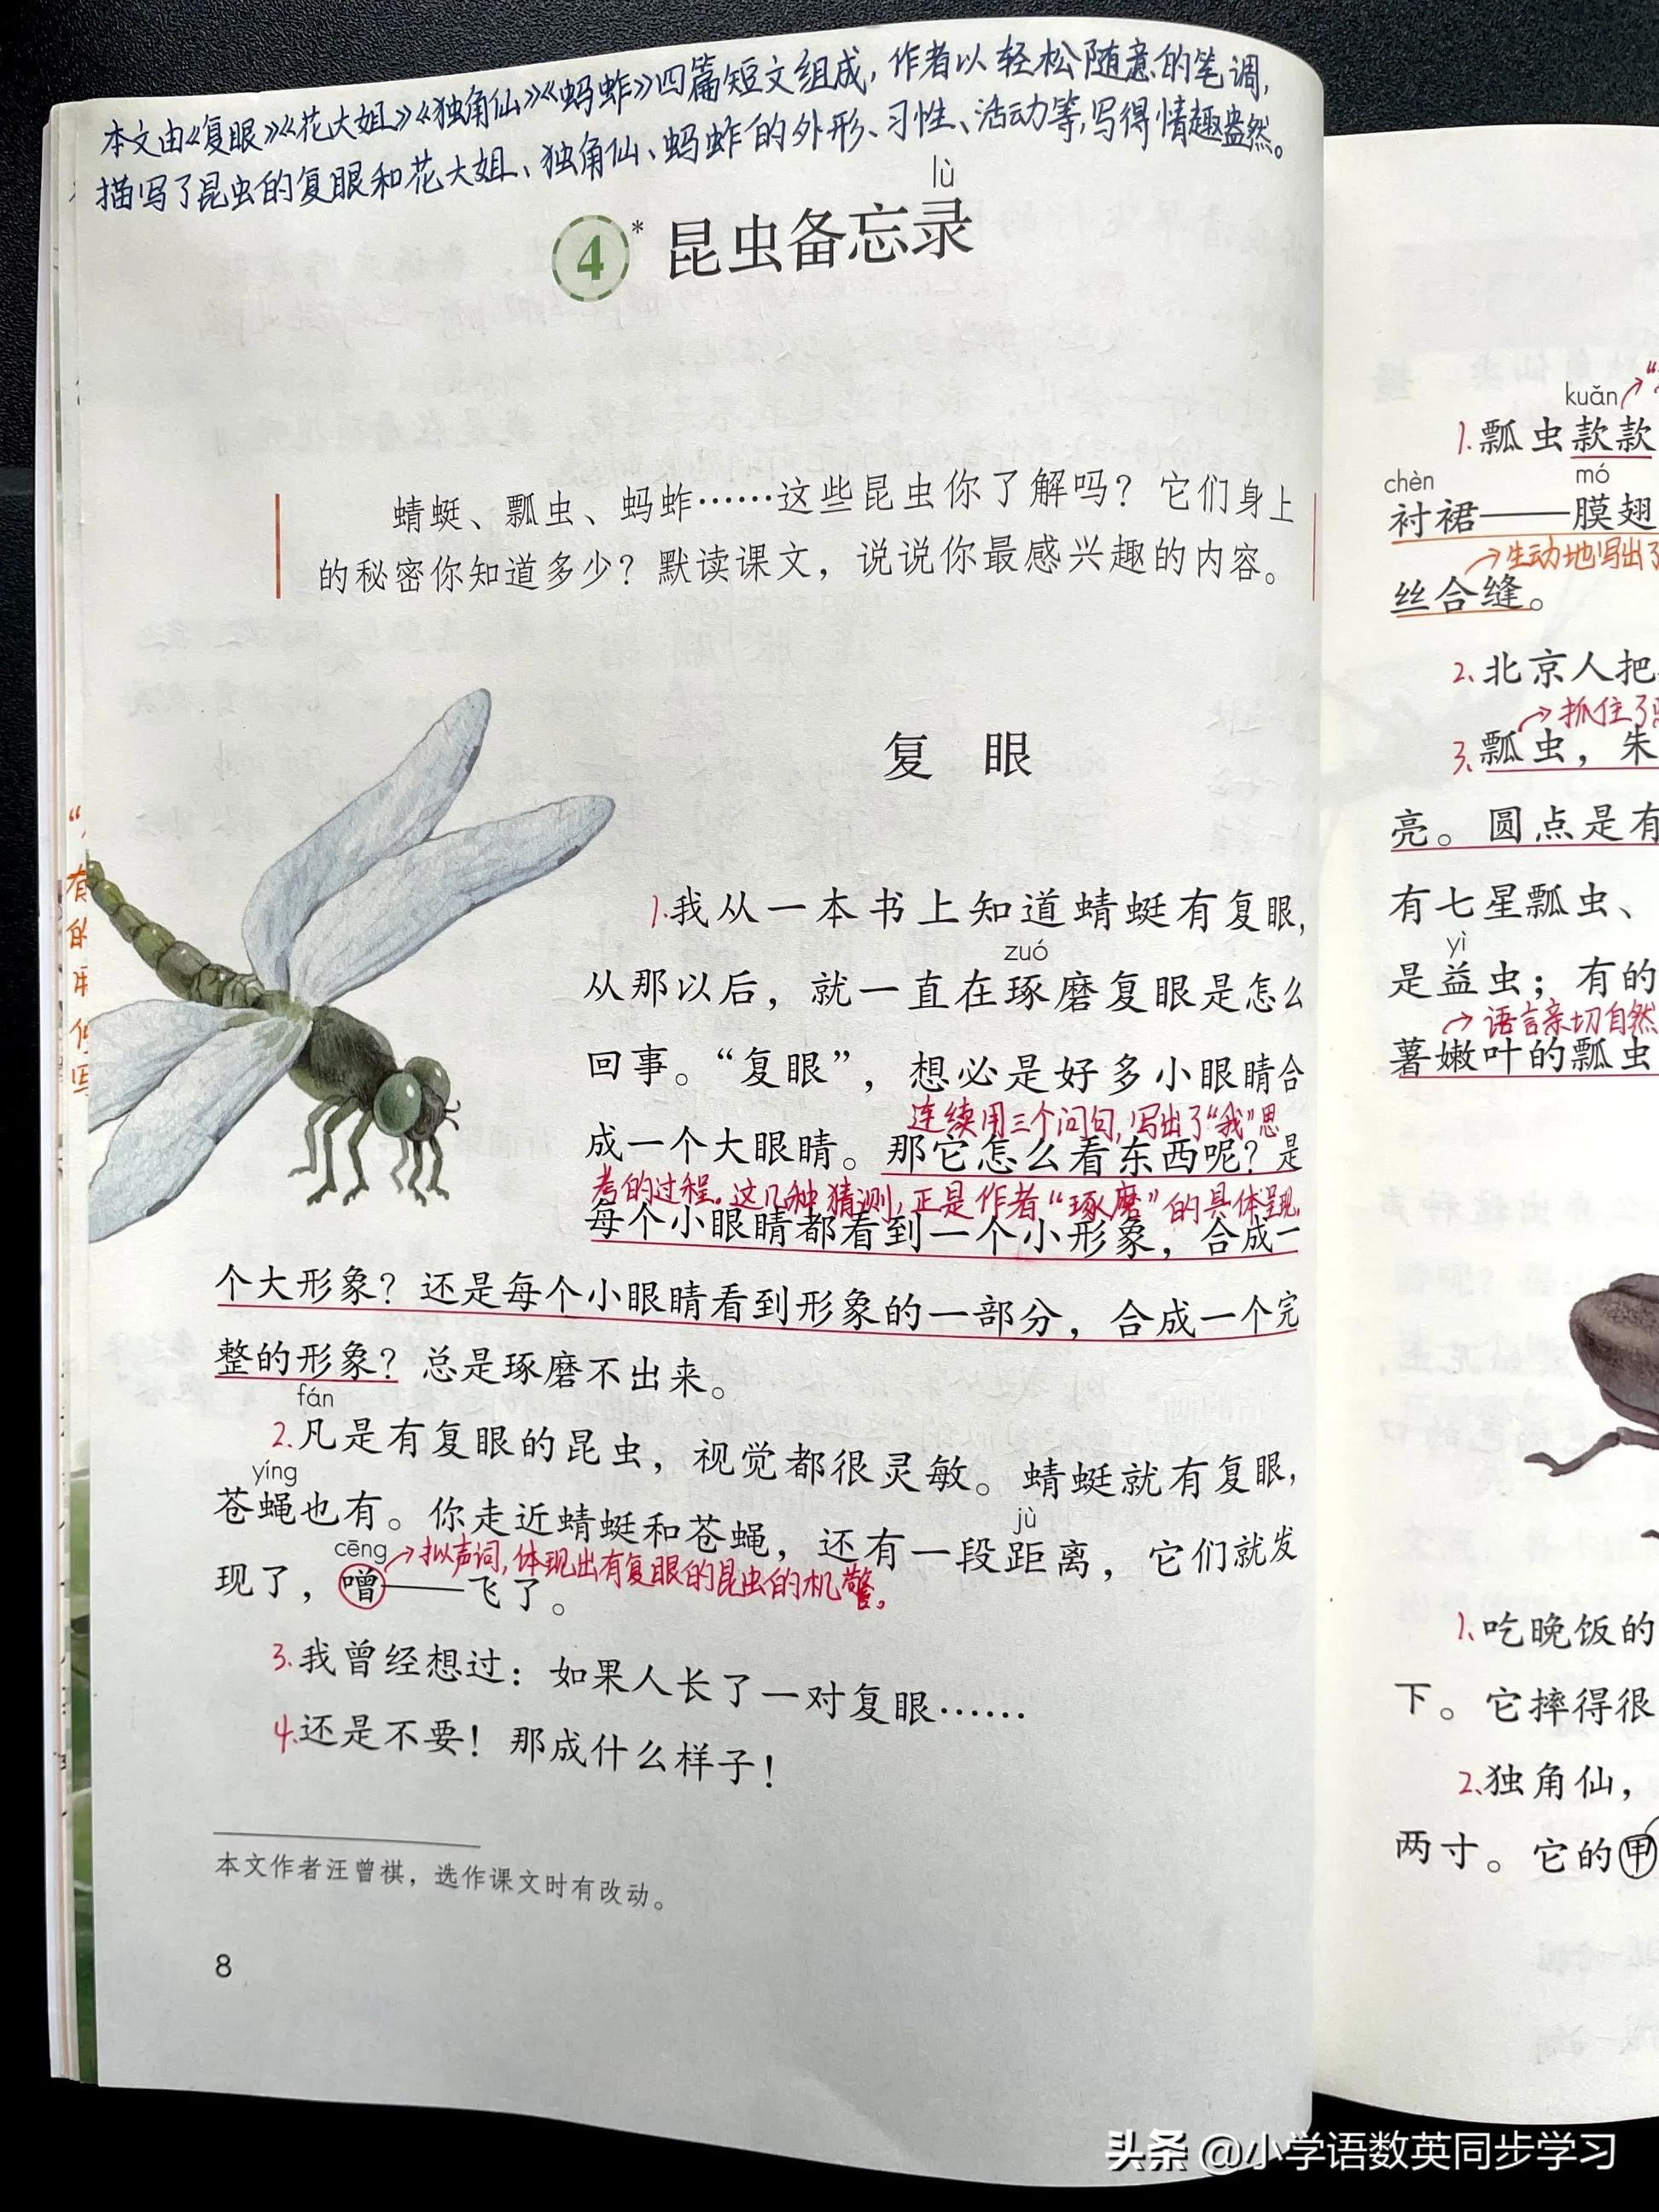 本文由《复眼》《花大姐》《独角仙》《蚂蚱》四篇短文组成,作者以轻松随意的笔调,
描写了昆虫的复眼和花大姐、独角仙、蚂蚱的外形、习性、活动等,写得情趣盎然。
lù
4* 昆虫备忘录
蜻蜓、瓢虫、蚂蚱……这些昆虫你了解吗？它们身上
的秘密你知道多少？默读课文，说说你最感兴趣的内容。
复 眼
1.我从一本书上知道蜻蜓有复眼，
zuó
从那以后，就一直在琢磨复眼是怎么
回事。“复眼”，想必是好多小眼睛合
连续用三个问句,写出了“我”思
成一个大眼睛。那它怎么看东西呢？是
考的过程。这几种猜测,正是作者“琢磨”的具体呈现
每个小眼睛都看到一个小形象，合成一
个大形象？还是每个小眼睛看到形象的一部分，合成一个完
整的形象？总是琢磨不出来。
fán
2.凡是有复眼的昆虫，视觉都很灵敏。蜻蜓就有复眼，
yíng
苍蝇也有。你走近蜻蜓和苍蝇，还有一段距离，它们就发
jù
cēng
拟声词,体现出有复眼的昆虫的机警。
现了，噌——飞了。
3.我曾经想过：如果人长了一对复眼……
4.还是不要！那成什么样子！
本文作者汪曾祺，选作课文时有改动。
8
kuǎn
1.瓢虫款款
chèn mó
衬裙——膜翅
生动地写出了
丝合缝。
2.北京人把
抓住了
3.瓢虫，朱
亮。圆点是有
有七星瓢虫、
yì
是益虫；有的
语言亲切自然
薯嫩叶的瓢虫
1.吃晚饭的
下。它摔得很
2.独角仙，
两寸。它的甲
头条 @小学语数英同步学习